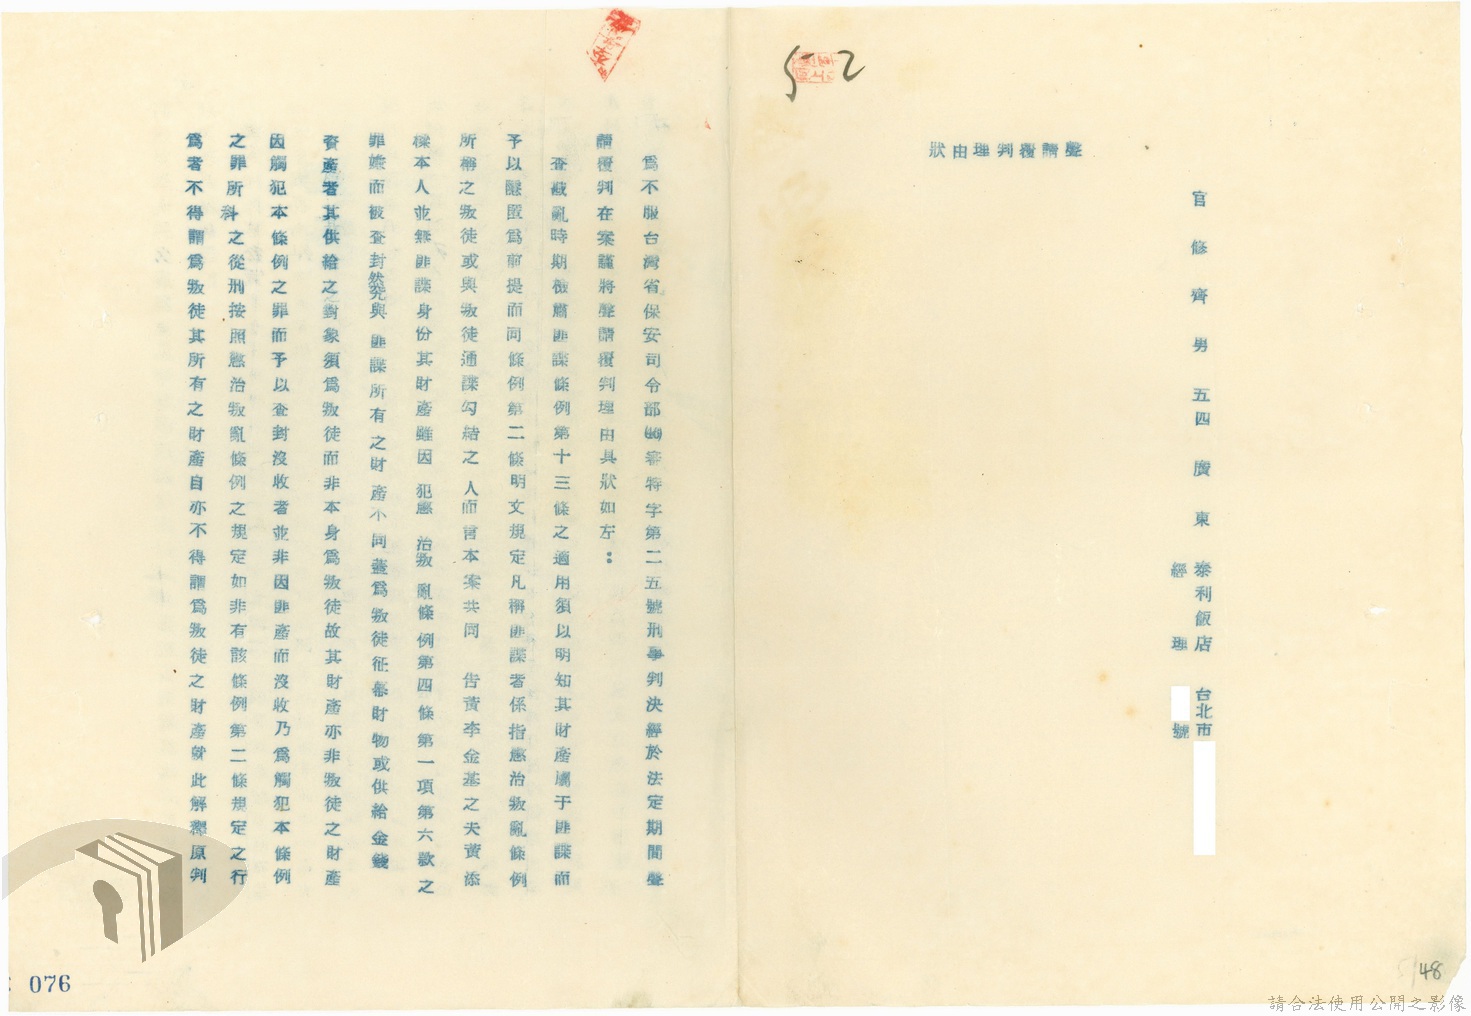 52
聲請覆判理由狀
官修齊 男 五四 廣東 泰利飯店經理 台北市 號
為不服台灣省保安司令部審特字第二五號刑事判決經於法定期間聲
請覆判在案謹將聲請覆判理由具狀如左：
查戡亂時期檢肅匪諜條例第十三條之適用須以明知其財產屬于匪諜而
予以隱匿為前提而同條例第二條明文規定凡稱匪諜者係指懲治叛亂條例
所稱之叛徒或與叛徒通謀勾結之人而言本案共同 告黃李金基之夫黃添
樑本人並無匪諜身份其財產雖因犯懲治叛亂條例第四條第一項第六款之
罪嫌而被查封然究與匪諜所有之財產不同蓋為叛徒征募財物或供給金錢
資產者其供給之對象須為叛徒而非本身為叛徒故其財產亦非叛徒之財產
因觸犯本條例之罪而予以查封沒收者並非因匪產而沒收乃為觸犯本條例
之罪所科之從刑按照懲治叛亂條例之規定如非有該條例第二條規定之行
為者不得謂為叛徒其所有之財產自亦不得謂為叛徒之財產就此解釋原判
076
48
請合法使用公開之影像